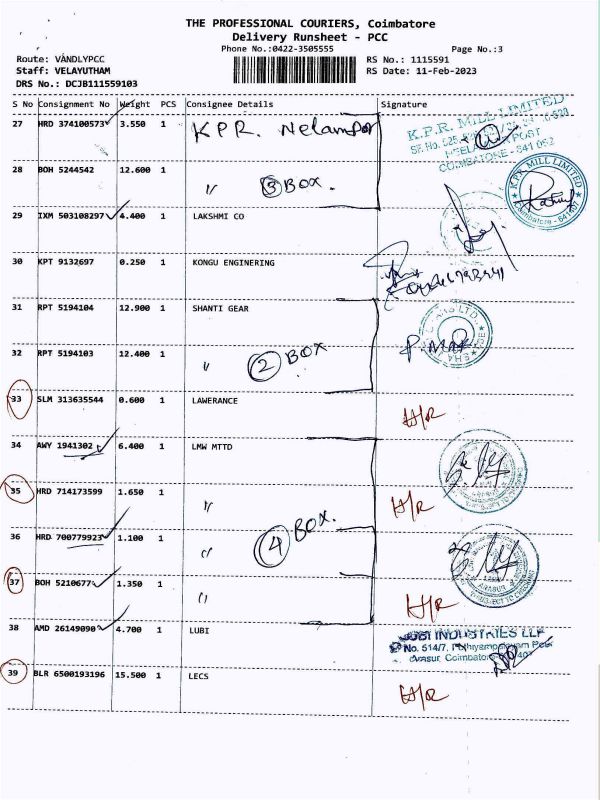 THE PROFESSIONAL COURIERS, Coimbatore
Delivery Runsheet - PCC
Phone No.:0422-3505555 Page No.:3
Route: VANDLYPCC RS No.: 1115591
Staff: VELAYUTHAM RS Date: 11-Feb-2023
DRS No.: DCJB111559103
S No Consignment No Weight PCS Consignee Details Signature
27 HRD 374100573 3.550 1 KPR. Nelampor
K.P.R. MILL LIMITED
COIMBATORE - 641 062
28 BOH 5244542 12.600 1 〃 3 BOX.
K.P.R. MILL LIMITED
29 IXM 503108297 4.400 1 LAKSHMI CO
30 KPT 9132697 0.250 1 KONGU ENGINERING
31 RPT 5194104 12.900 1 SHANTI GEAR
32 RPT 5194103 12.400 1 〃 2 BOX
33 SLM 313635544 0.600 1 LAWERANCE H/R
34 AWY 1941302 6.400 1 LMW MTTD
35 HRD 714173599 1.650 1 〃 H/R
36 HRD 700779923 1.100 1 〃 4 BOX.
37 BOH 5210677 1.350 1 〃 H/R
38 AMD 26149090 4.700 1 LUBI
LUBI INDUSTRIES LLP
No. 514/7,
Arasur, Coimbatore
39 BLR 6500193196 15.500 1 LECS H/R